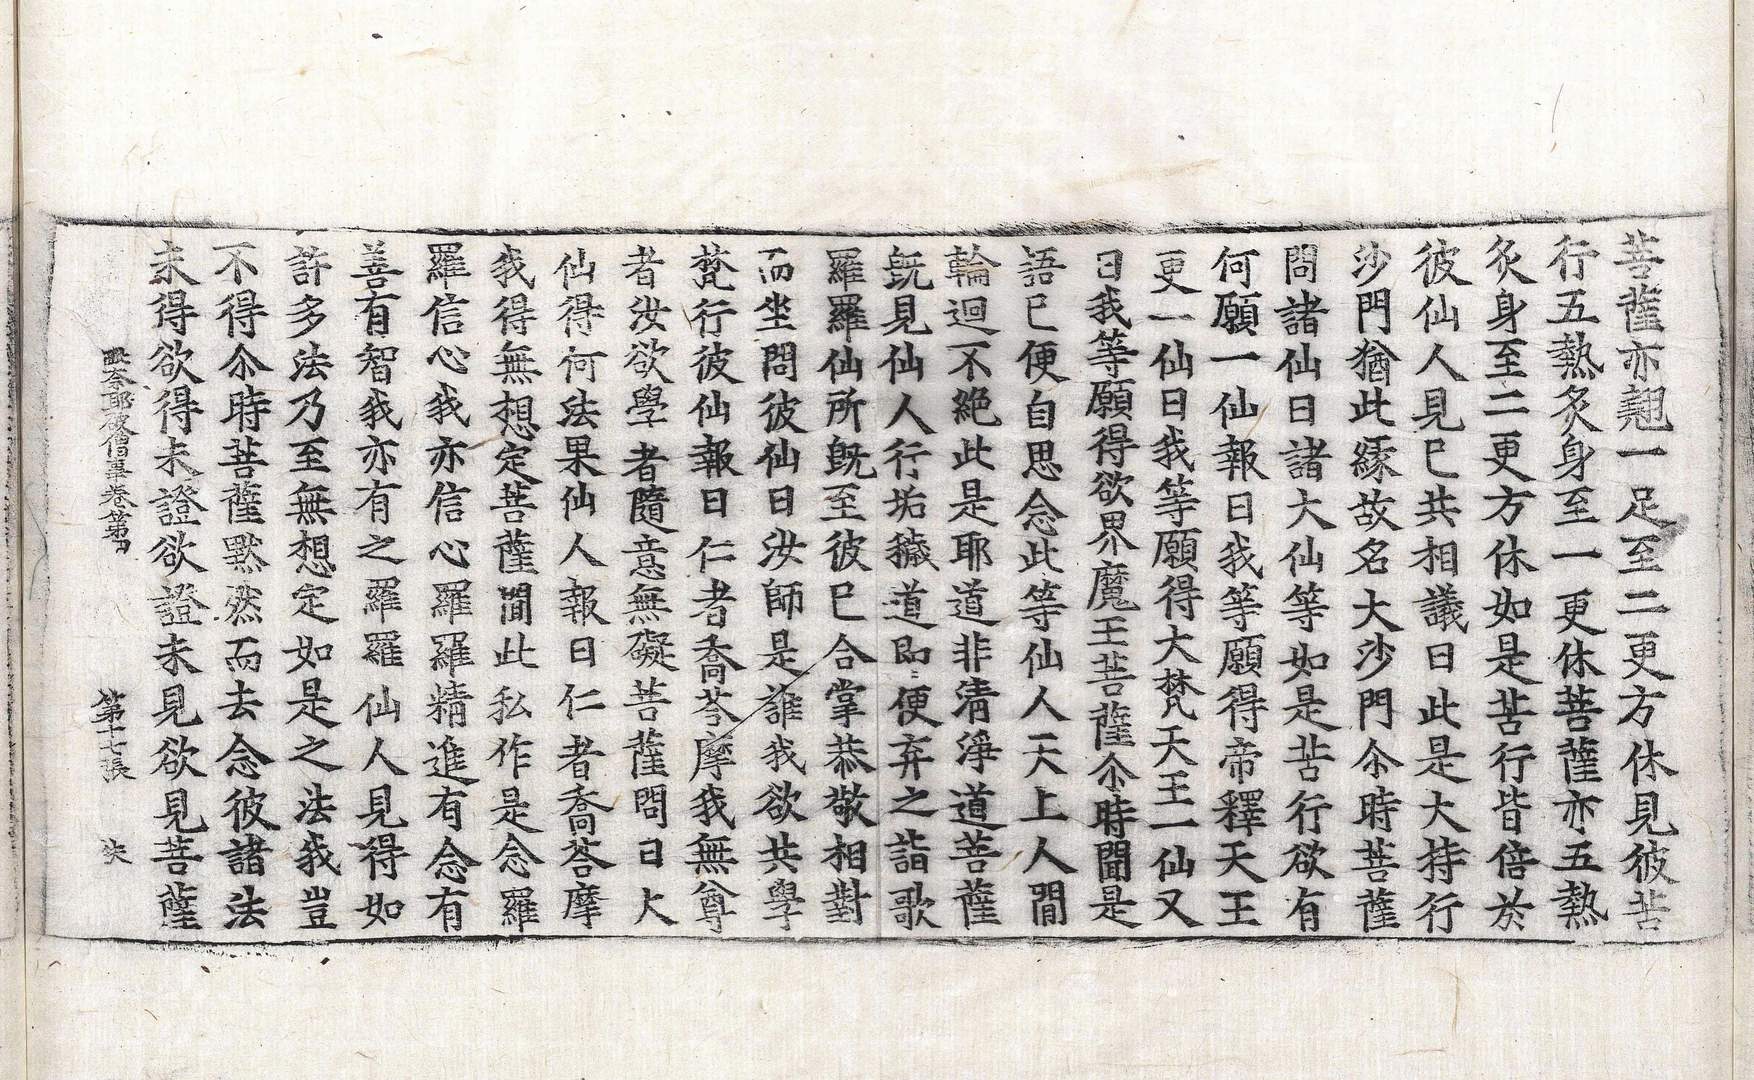 菩薩亦翹一足至二更方休見彼苦
行五熱炙身至一更休菩薩亦五熱
炙身至二更方休如是苦行皆倍於
彼仙人見已共相議曰此是大持行
沙門猶此緣故名大沙門尒時菩薩
問諸仙曰諸大仙等如是苦行欲有
何願一仙報曰我等願得帝釋天王
更一仙曰我等願得大梵天王一仙又
曰我等願得欲界魔王菩薩尒時聞是
語已便自思念此等仙人天上人間
輪迴不絶此是耶道非清淨道菩薩
旣見仙人行垢穢道即便弃之詣歌
羅羅仙所旣至彼已合掌恭敬相對
而坐問彼仙曰汝師是誰我欲共學
梵行彼仙報曰仁者喬荅摩我無尊
者汝欲學者隨意無礙菩薩問曰大
仙得何法果仙人報曰仁者喬荅摩
我得無想定菩薩聞此私作是念羅
羅信心我亦信心羅羅精進有念有
善有智我亦有之羅羅仙人見得如
許多法乃至無想定如是之法我豈
不得尒時菩薩默然而去念彼諸法
未得欲得未證欲證未見欲見菩薩
毗奈耶破僧事卷第四 第十七張